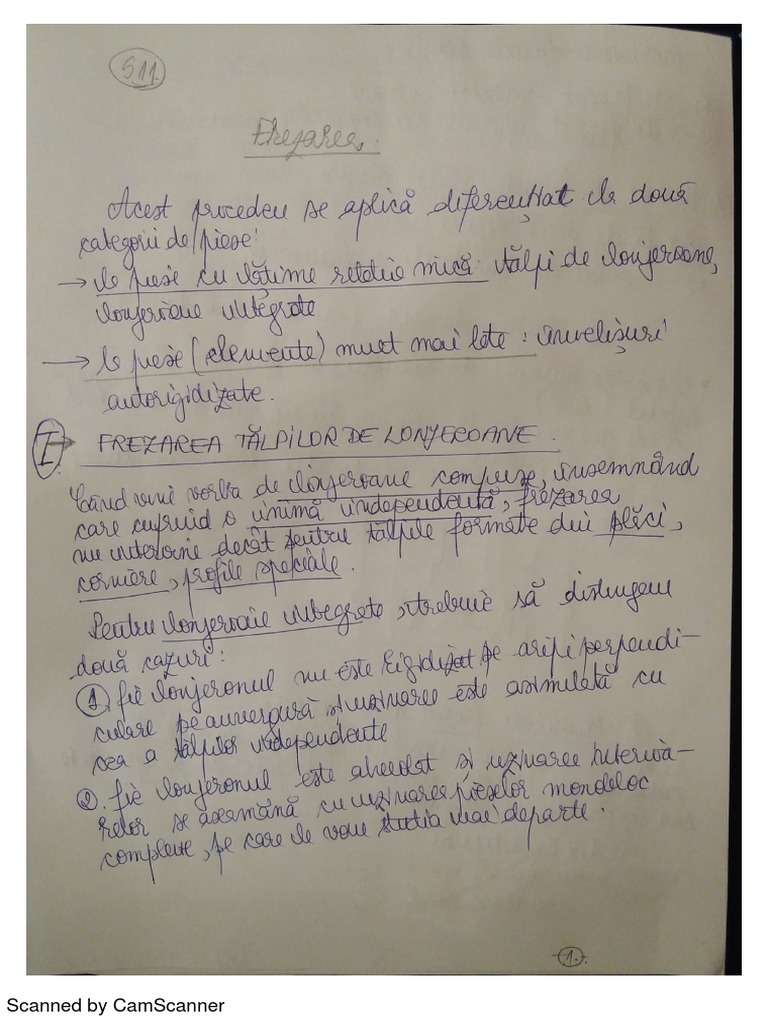 S11.
Frezarea.
Acest procedeu se aplică diferențiat la două
categorii de piese:
→ la piese cu lățime relativ mică: tălpi de lonjeroane,
lonjeroane integrate
→ la piese (elemente) mult mai late: învelișuri
autorigidizate.
I → FREZAREA TĂLPILOR DE LONJEROANE.
Când vine vorba de lonjeroane compuse, însemnând
care cuprind o inimă independentă, frezarea
nu intervine decât pentru tălpile formate din plăci,
corniere, profile speciale.
Pentru lonjeroane integrate, trebuie să distingem
două cazuri:
1. fie lonjeronul nu este rigidizat pe aripi perpendi-
culare pe anvergură și uzinarea este asimilată cu
cea a tălpilor independente
2. fie lonjeronul este alveolat și uzinarea interioa-
relor se aseamănă cu uzinarea pieselor monobloc
complexe, pe care le vom studia mai departe.
1.
Scanned by CamScanner